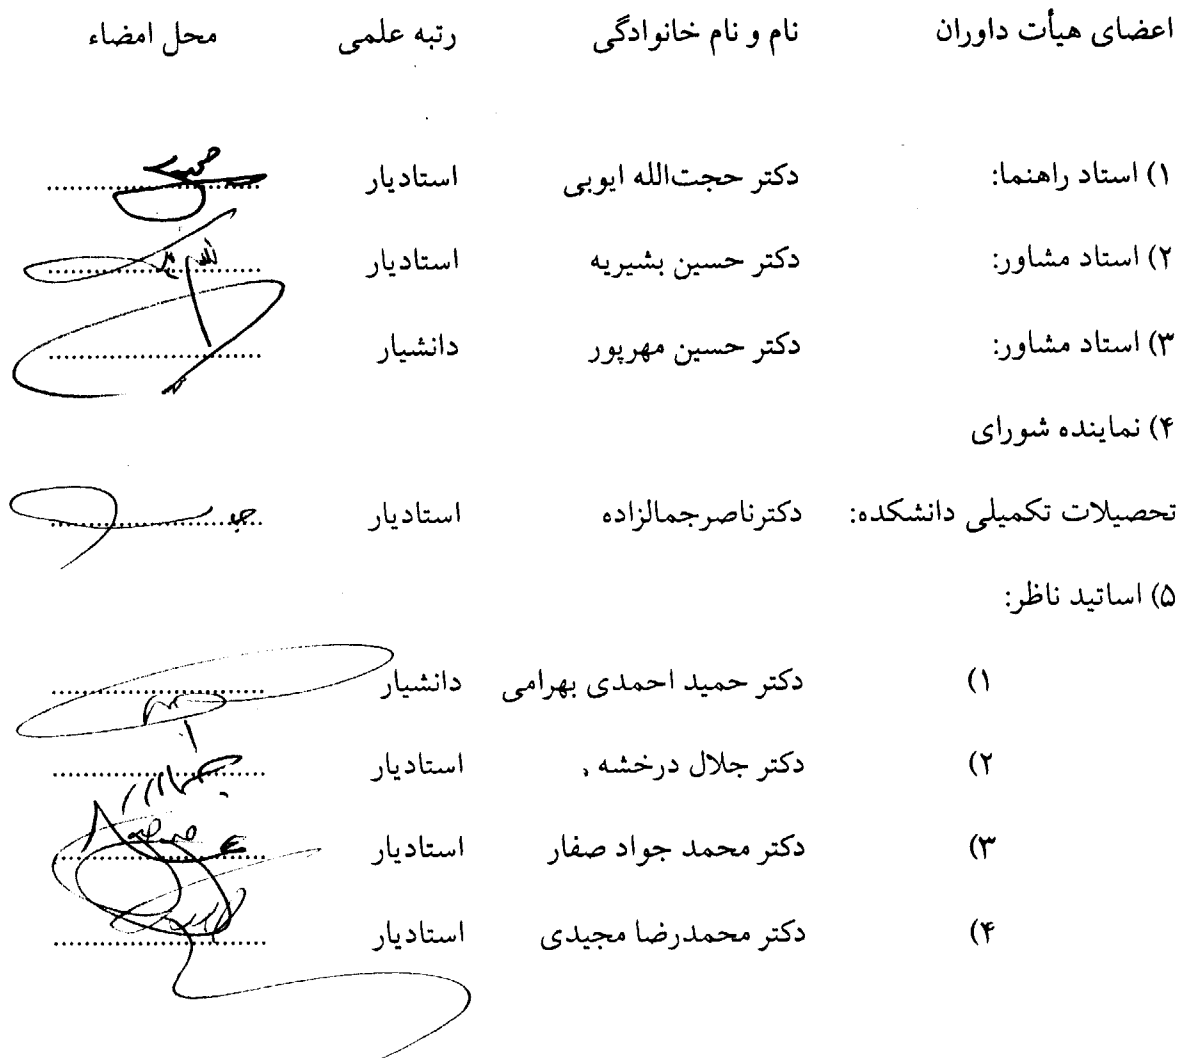 اعضای هیأت داوران نام و نام خانوادگی رتبه علمی محل امضاء
۱) استاد راهنما: دکتر حجت‌الله ایوبی استادیار ........................
۲) استاد مشاور: دکتر حسین بشیریه استادیار ........................
۳) استاد مشاور: دکتر حسین مهرپور دانشیار ........................
۴) نماینده شورای
تحصیلات تکمیلی دانشکده: دکترناصرجمالزاده استادیار ........................
۵) اساتید ناظر:
۱) دکتر حمید احمدی بهرامی دانشیار ........................
۲) دکتر جلال درخشه استادیار ........................
۳) دکتر محمد جواد صفار استادیار ........................
۴) دکتر محمدرضا مجیدی استادیار ........................